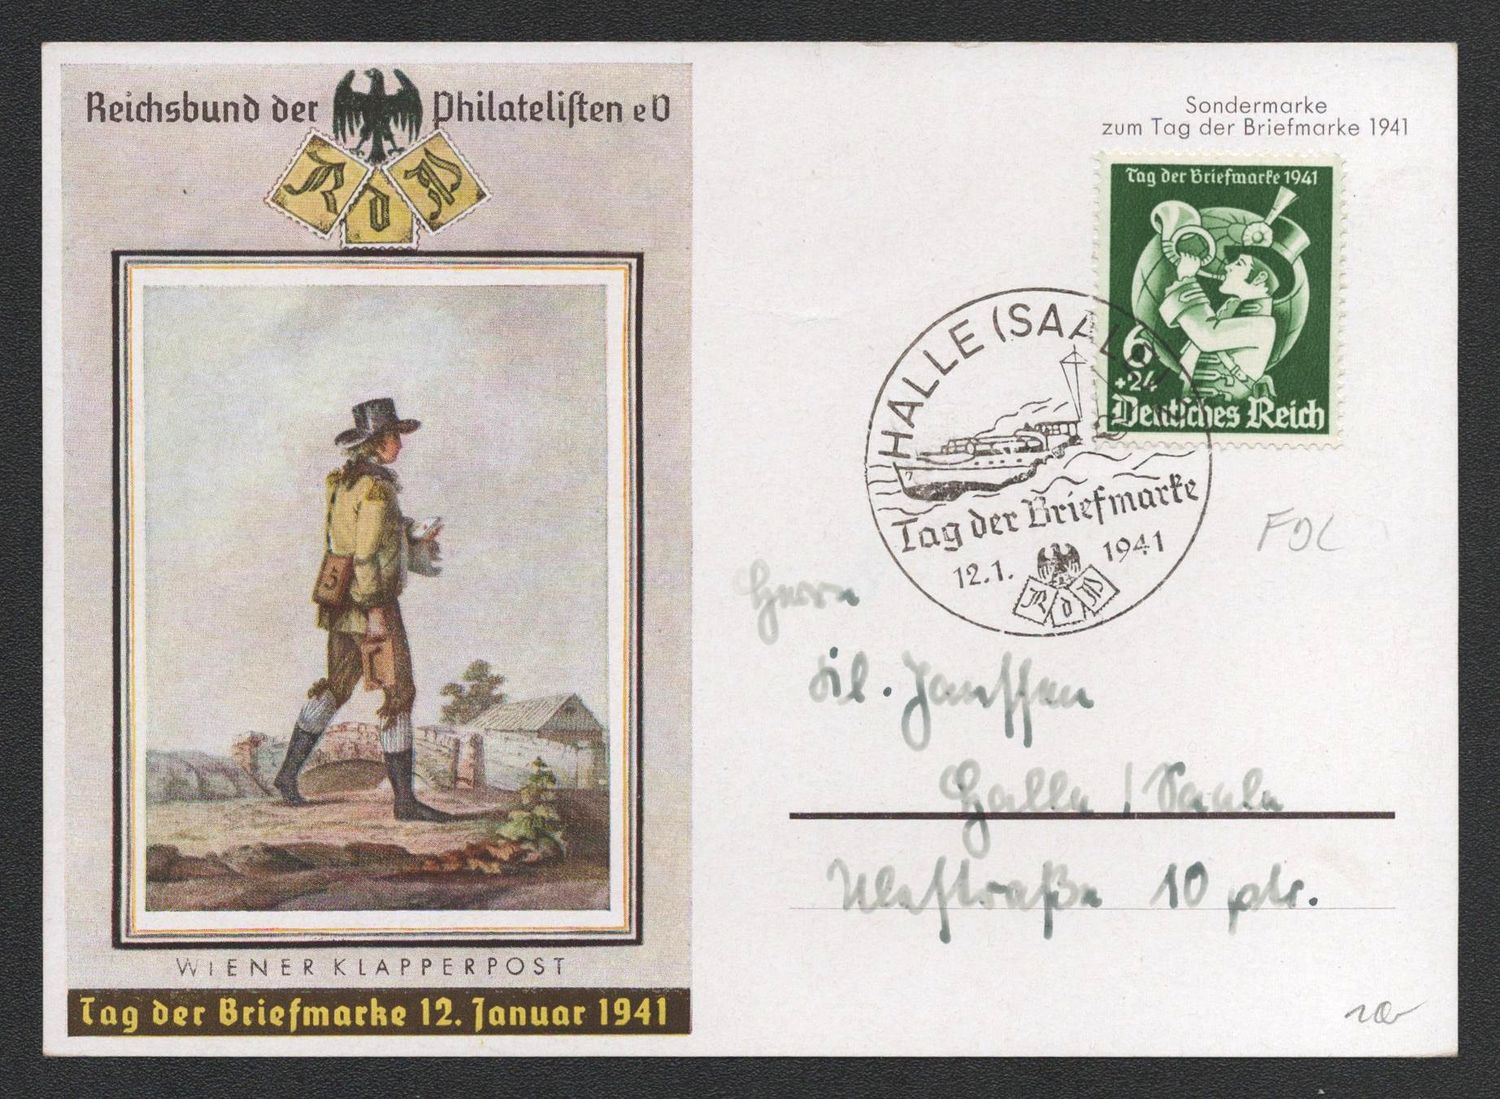 Reichsbund der Philatelisten eV
R d P
WIENER KLAPPERPOST
Tag der Briefmarke 12. Januar 1941
Sondermarke
zum Tag der Briefmarke 1941
Tag der Briefmarke 1941
6
+24
Deutsches Reich
HALLE (SAALE)
Tag der Briefmarke
12.1. 1941
R d P
FDC
Herrn
Janssen
Halle / Saale
10 ptr.